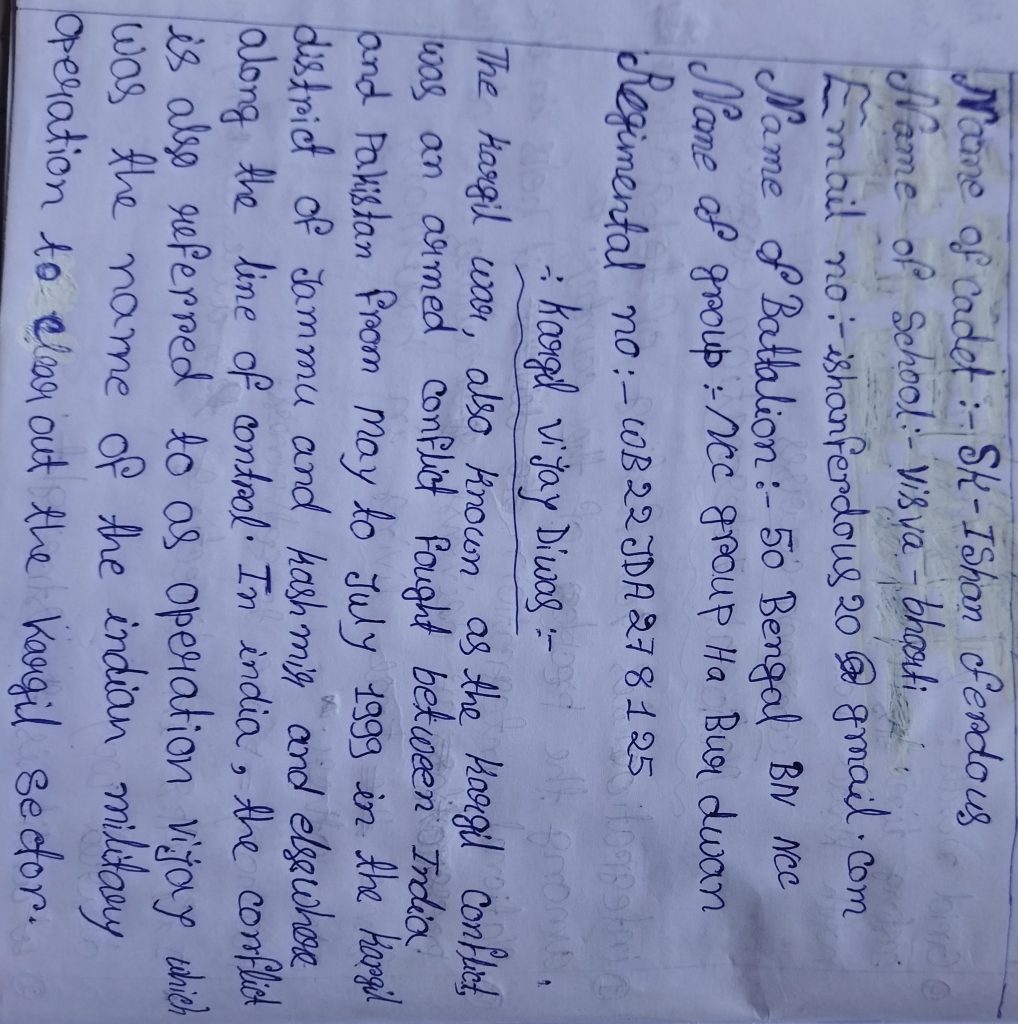 Name of cadet :- Sk - IShan ferdous
Name of School :- Visva - bharti
Email no :- ishanferdous20@gmail.com
Name of Battalion :- 50 Bengal BN NCC
Name of group :- NCC group Ha Bur dwan
Regimental no :- WB22JDA278125
:- Kargil vijay Diwas :-
The Kargil war, also known as the Kargil conflict,
was an armed conflict fought between India
and Pakistan from may to July 1999 in the Kargil
district of Jammu and kashmir and elsewhere
along the line of control. In india, the conflict
is also referred to as operation vijay which
was the name of the indian military
operation to clear out the Kargil sector.